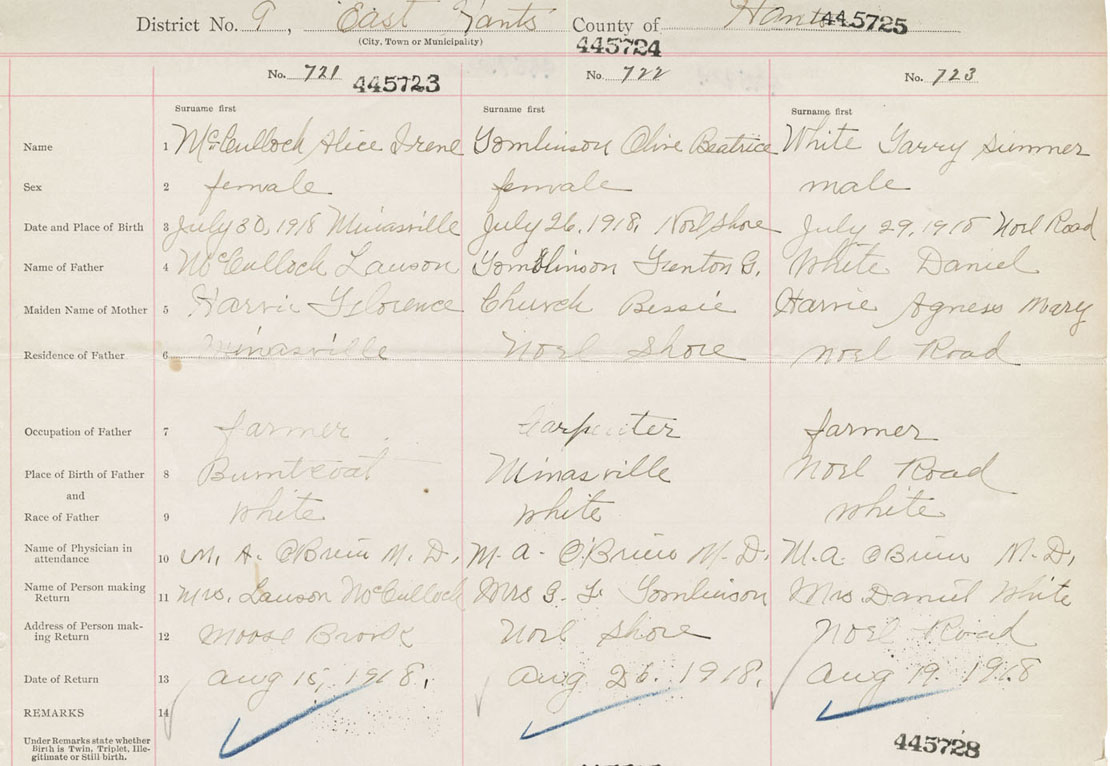 District No. 9, East Hants County of Hants 445725
(City, Town or Municipality) 445724
No. 721 445723 No. 722 No. 723
Surname first Surname first Surname first
Name 1 McCulloch Alice Irene Tomlinson Olive Beatrice White Garry Sumner
Sex 2 female female male
Date and Place of Birth 3 July 30, 1918 Minasville July 26, 1918, Noel Shore July 29, 1918 Noel Road
Name of Father 4 McCulloch Lawson Tomlinson Fenton G. White Daniel
Maiden Name of Mother 5 Harvie Florence Church Bessie Harvie Agness Mary
Residence of Father 6 Minasville Noel Shore Noel Road
Occupation of Father 7 farmer Carpenter farmer
Place of Birth of Father 8 Burntcoat Minasville Noel Road
and
Race of Father 9 White White White
Name of Physician in
attendance 10 M. A. O'Brien M. D. M. A. O'Brien M. D. M. A. O'Brien M. D.
Name of Person making
Return 11 Mrs. Lawson McCulloch Mrs G. F. Tomlinson Mrs Daniel White
Address of Person mak-
ing Return 12 Moose Brook Noel Shore Noel Road
Date of Return 13 Aug 15, 1918. Aug 26. 1918. Aug 19. 1918
REMARKS 14
Under Remarks state whether
Birth is Twin, Triplet, Ille-
gitimate or Still birth.
445728